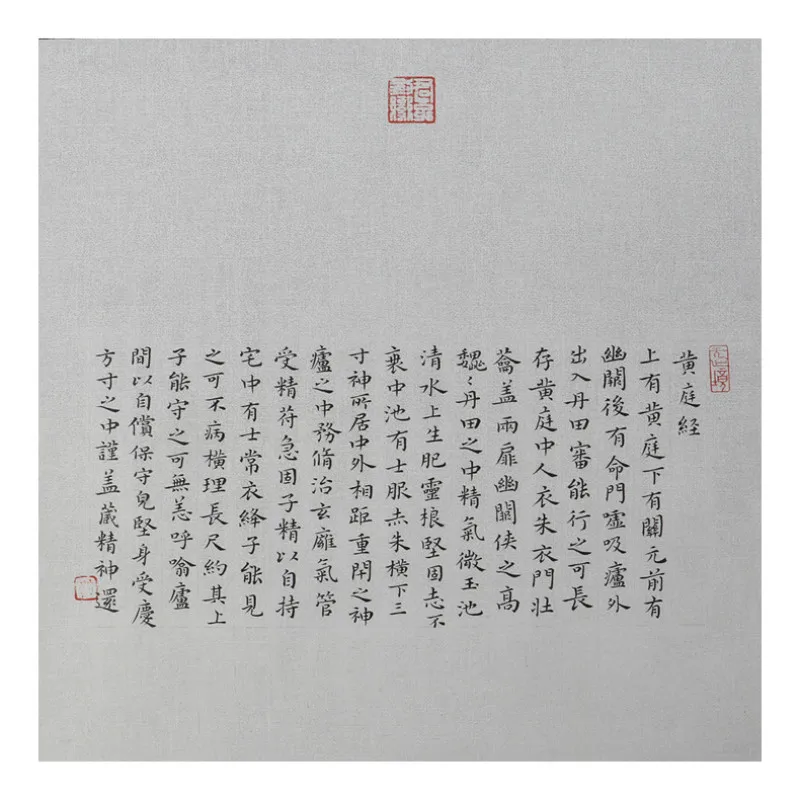 黄庭经
上有黄庭下有關元前有
幽闕後有命門噓吸廬外
出入丹田審能行之可長
存黄庭中人衣朱衣門壯
蘥盖兩扉幽闕侠之高
魏〻丹田之中精氣微玉池
清水上生肥靈根堅固志不
衰中池有士服赤朱横下三
寸神所居中外相距重閇之神
廬之中務脩治玄廱氣管
受精苻急固子精以自持
宅中有士常衣絳子能見
之可不病横理長尺約其上
子能守之可無恙呼噏廬
間以自償保守皃堅身受慶
方寸之中謹盖蔵精神還